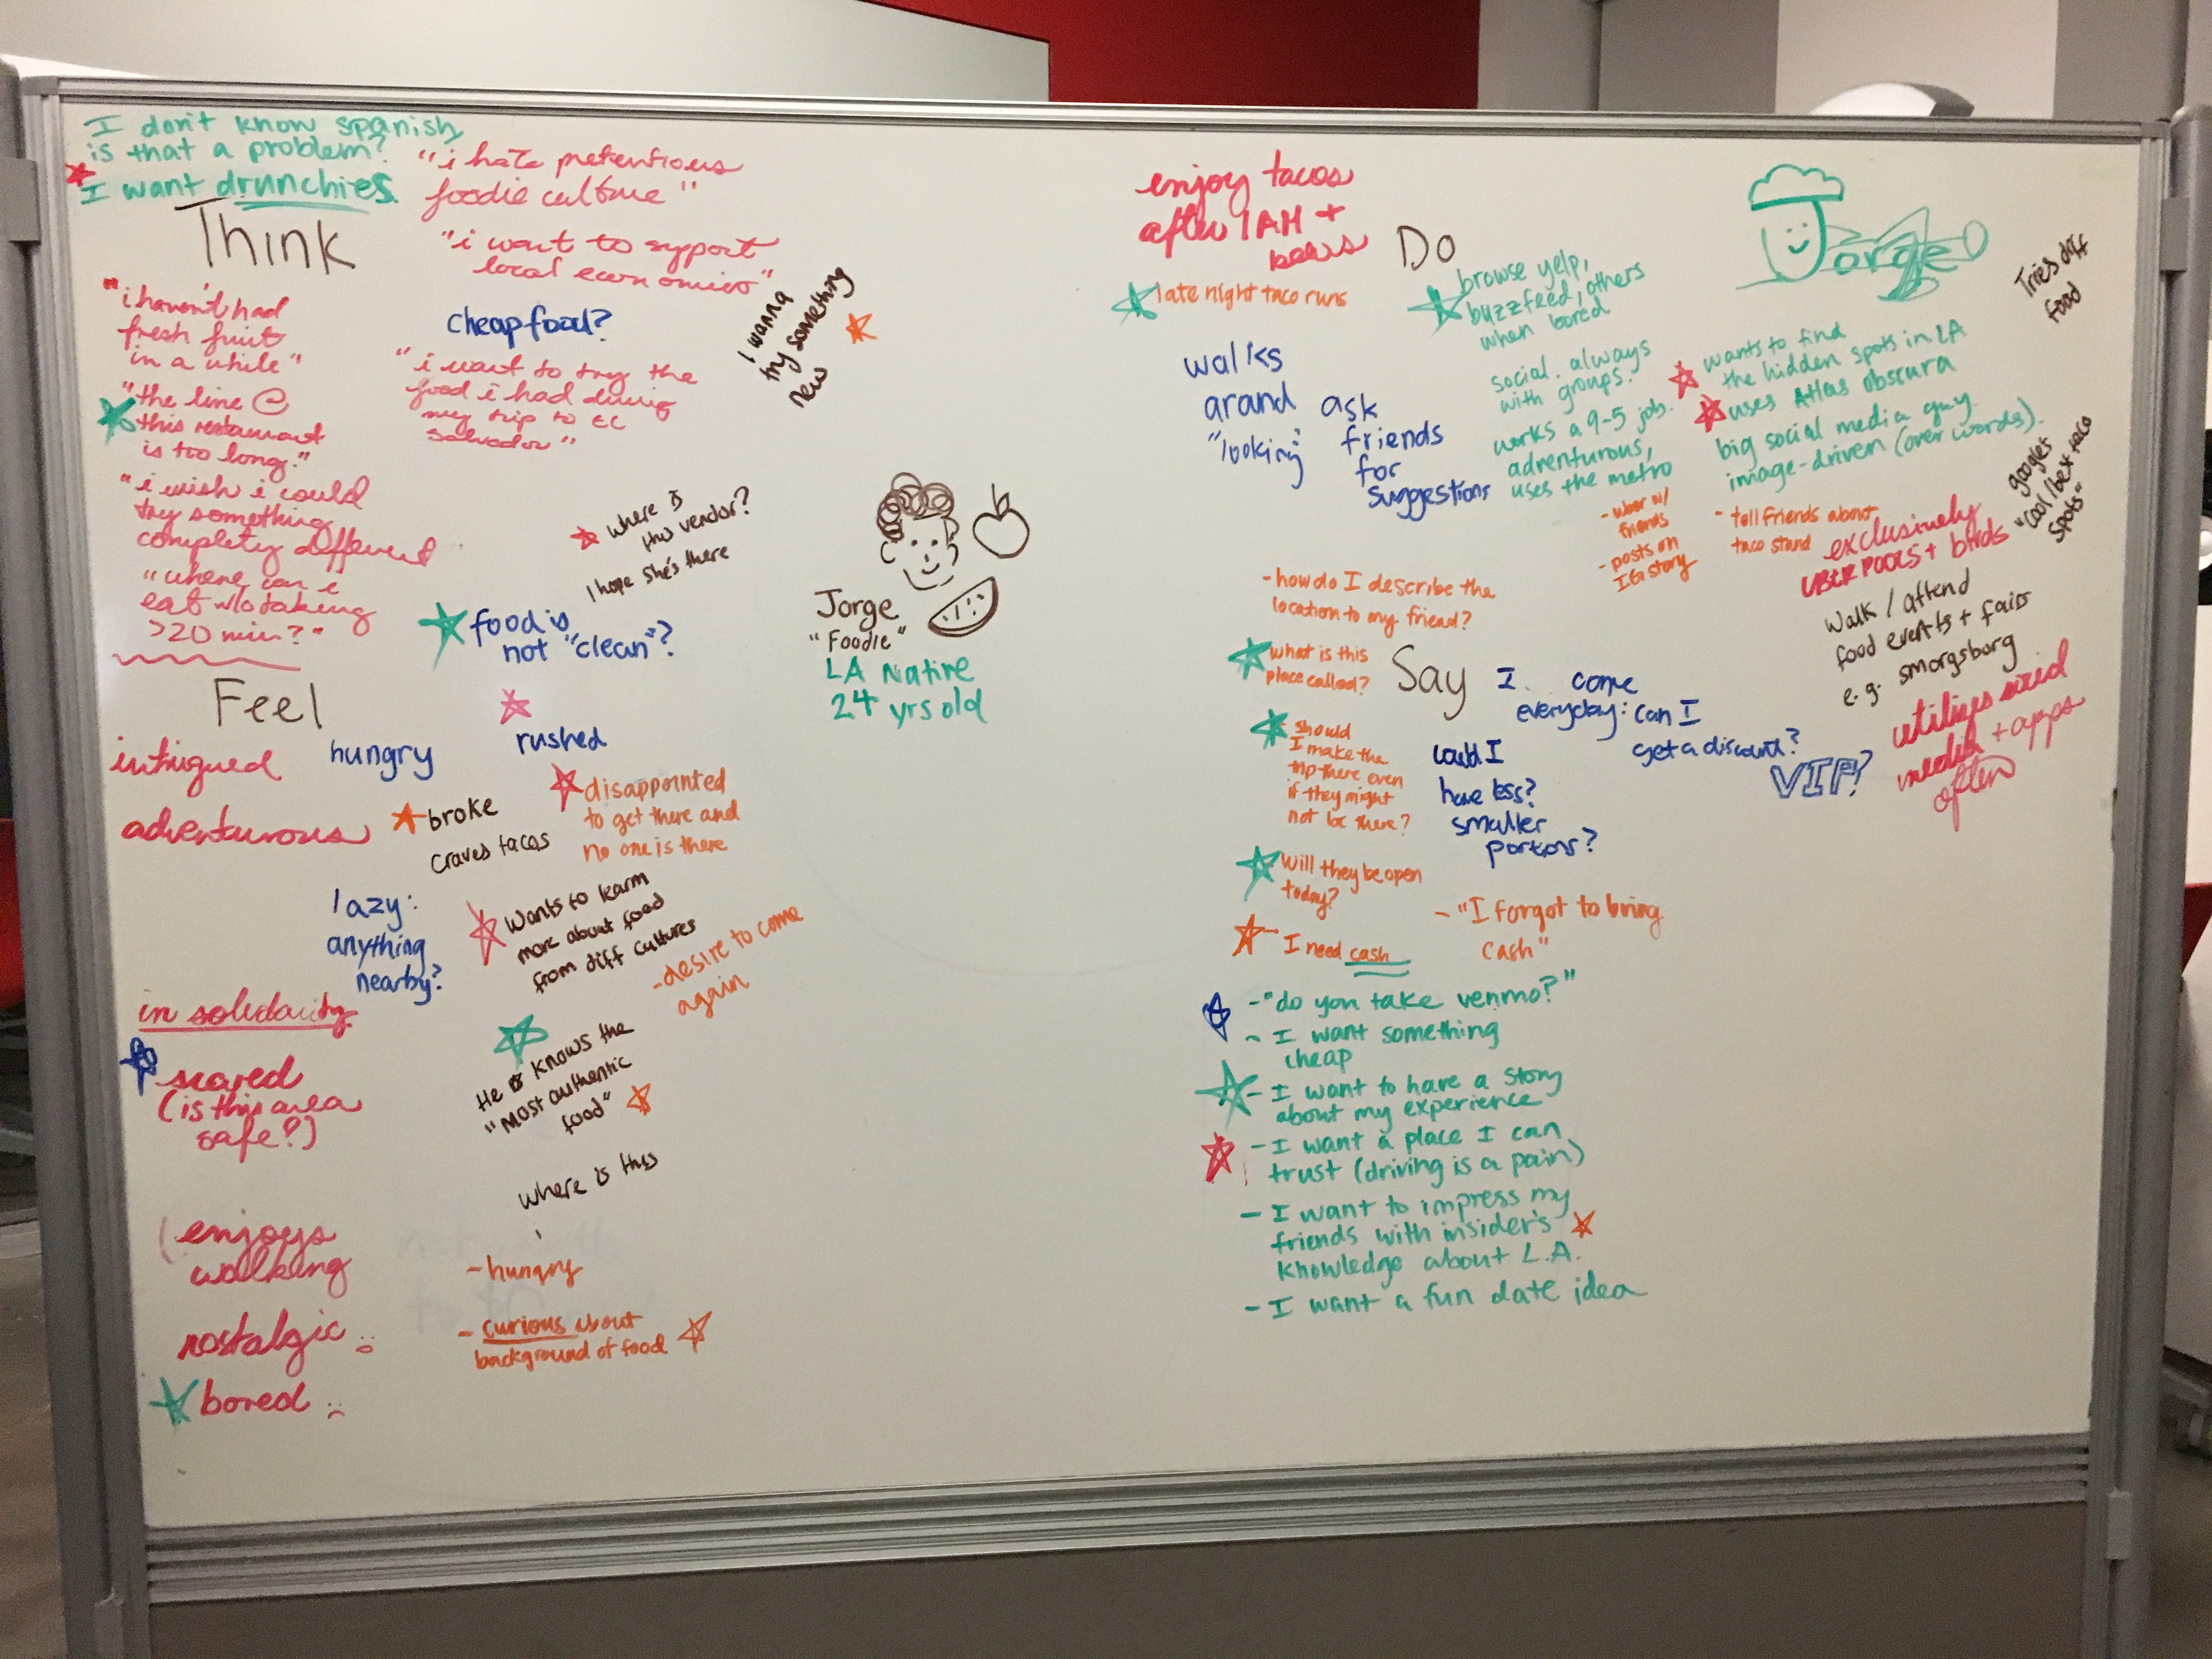 I don't know spanish,
is that a problem?
I want drunchies.
"i hate pretentious
foodie culture"
Think
"i want to support
local economies"
"i haven't had
fresh fruit
in a while"
cheap food?
I wanna
try something
new
"i want to try the
food i had during
my trip to El
Salvador"
"the line @
this restaurant
is too long."
"i wish i could
try something
completly different
"where can i
eat w/o taking
>20 min?"
where is
this vendor?
I hope she's there
food is
not "clean"?
Jorge
"Foodie"
LA Native
24 yrs old
Feel
intrigued
hungry
rushed
adventurous
broke
craves tacos
disappointed
to get there and
no one is there
lazy:
anything
nearby?
Wants to learn
more about food
from diff cultures
-desire to come
again
in solidarity
scared
(is this area
safe?)
He knows the
"Most authentic
food"
where is this
enjoys
walking
- hungry
nostalgic
- curious about
background of food
bored
enjoy tacos
after 1AM +
beers
Do
late night taco runs
browse yelp,
buzzfeed, others
when bored
Jorge
Tries diff
food
walks
arand
"looking"
ask
friends
for
suggestions
social. always
with groups.
works a 9-5 job.
adventurous,
uses the metro
wants to find
the hidden spots in LA
uses Atlas obscura
big social media guy.
image-driven (over words).
googles
"cool/best taco
spots"
friends
- posts on
IG story
- tell friends about
taco stand
exclusively
UBER POOLS + birds
Walk / attend
food events + fairs
e.g. smorgsborg
utilizes social
media + apps
often
- how do I describe the
location to my friend?
what is this
place called?
Say
I come
everyday: can I
get a discount?
VIP?
should
I make the
trip there even
if they might
not be there?
could I
have less?
smaller
portions?
Will they be open
today?
- I need cash
- "I forgot to bring
cash"
- "do you take venmo?"
- I want something
cheap
- I want to have a story
about my experience
- I want a place I can
trust (driving is a pain)
- I want to impress my
friends with insider's
knowledge about L.A.
- I want a fun date idea